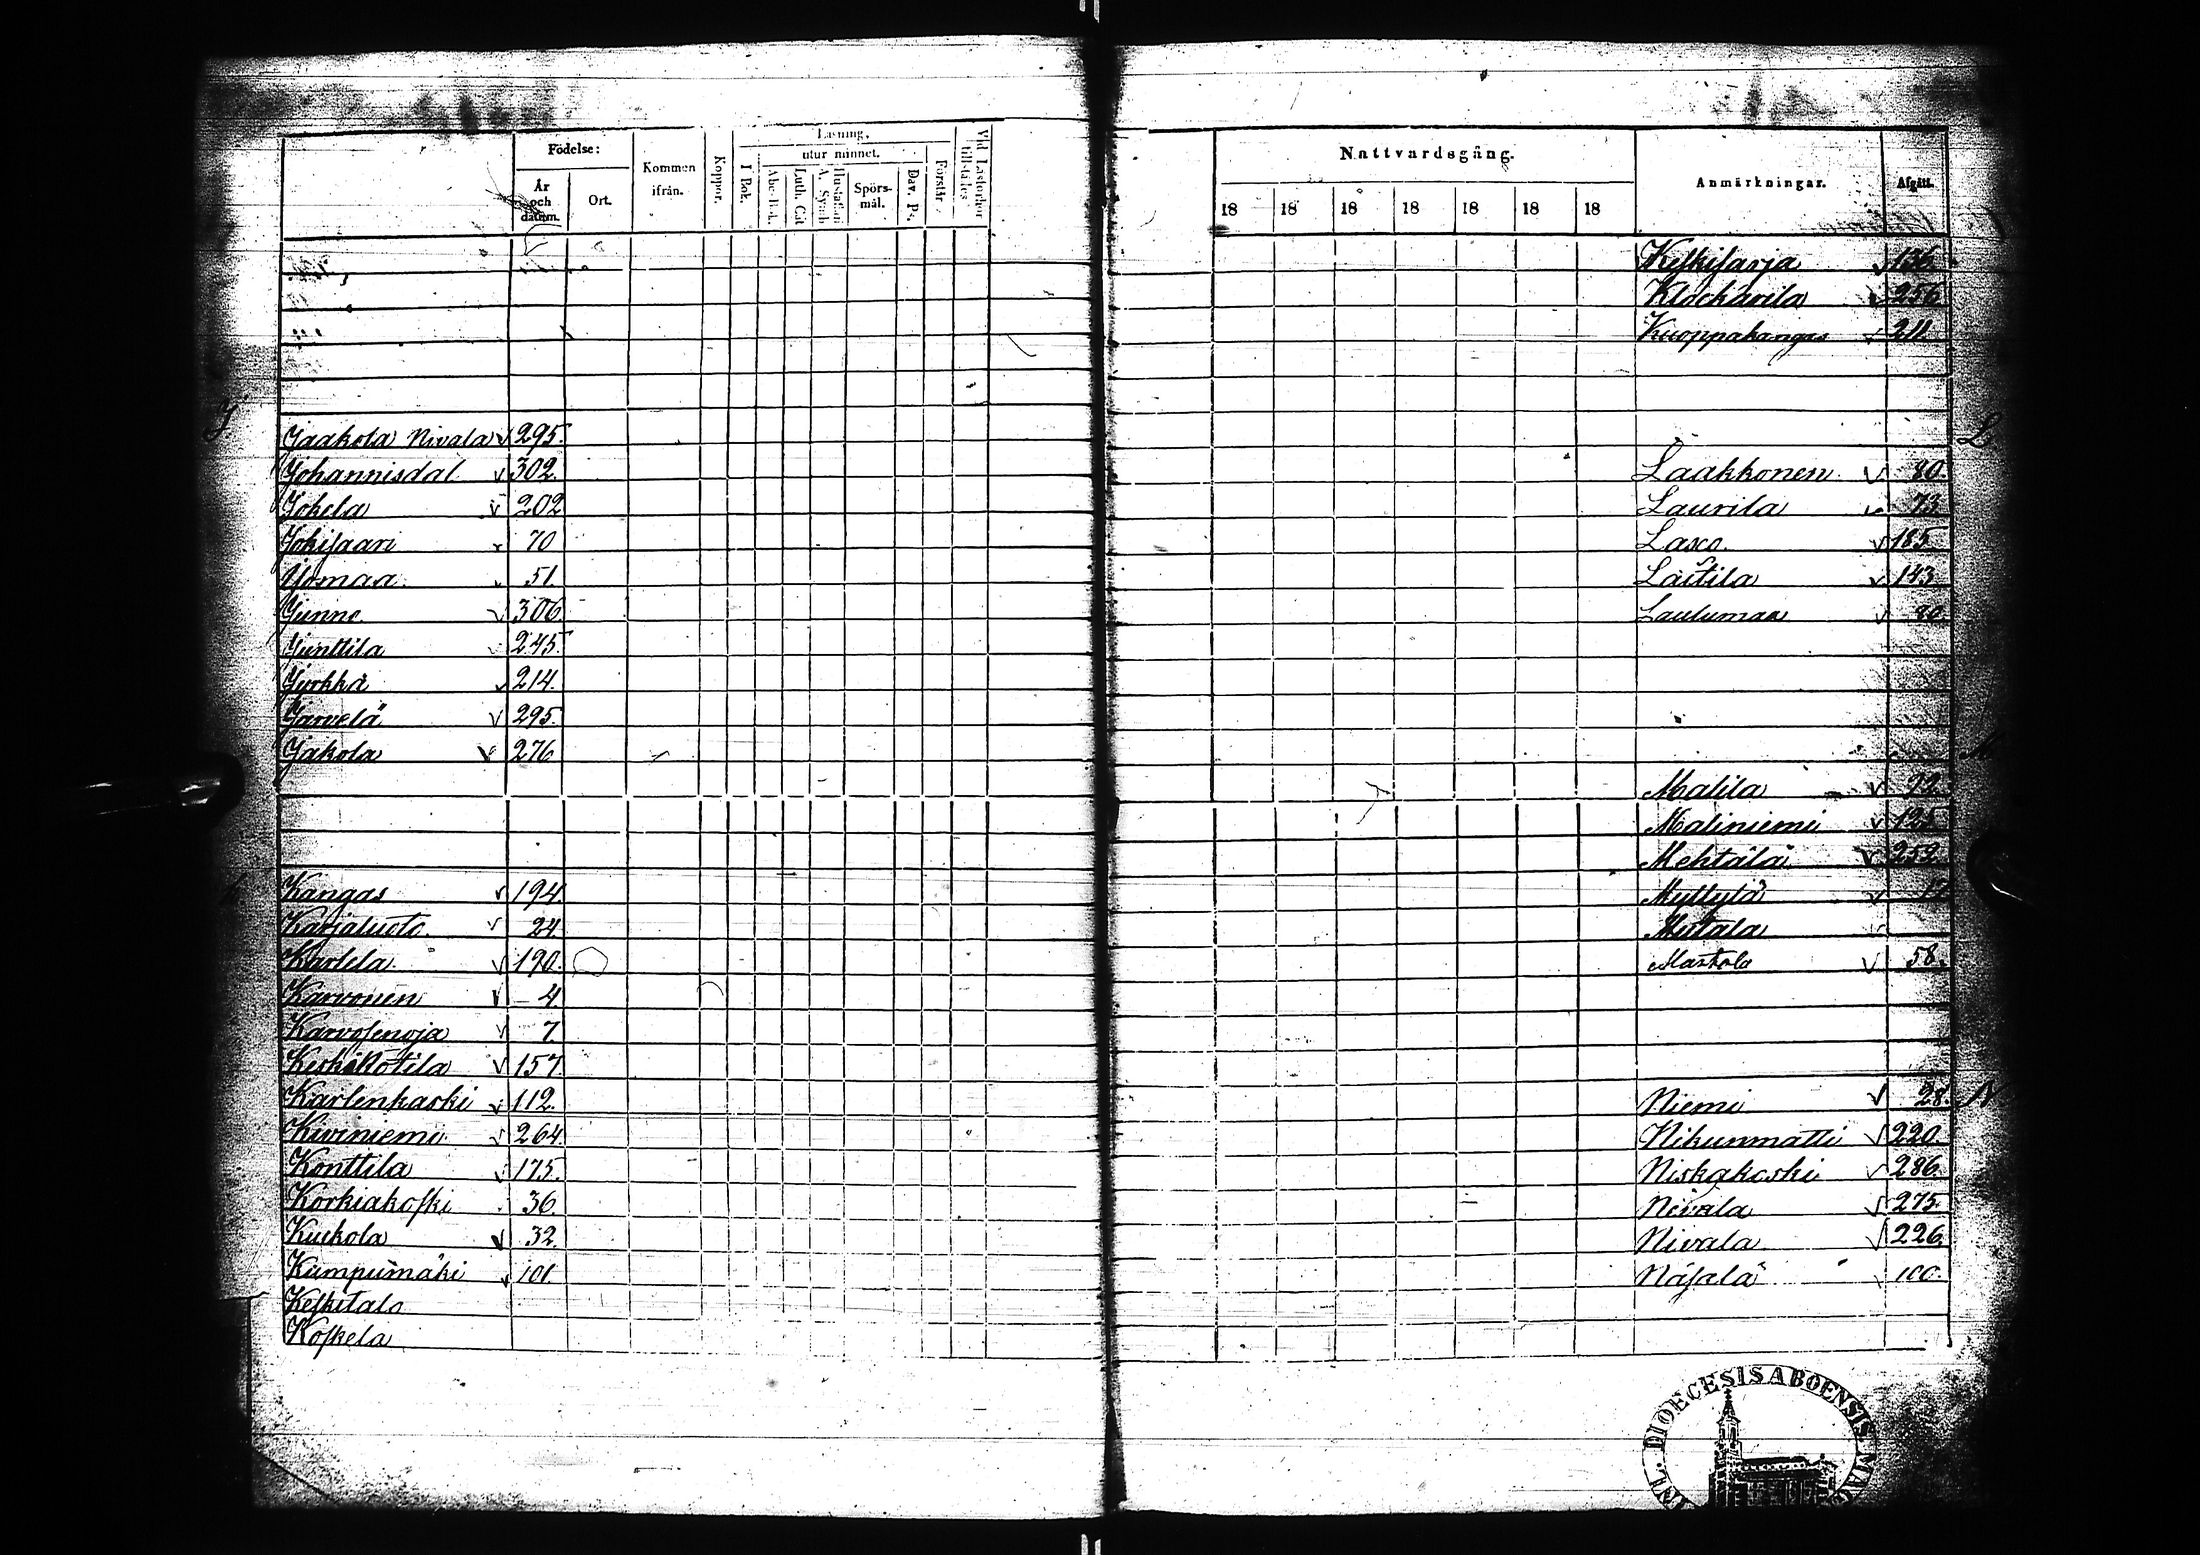 Födelse:
År och datum.
Ort.
Kommen ifrån.
Koppor.
Läsning,
utur minnet.
I Bok.
Abc-Bok.
Luth. Cat
Hustaflan A. Symb.
Spörsmål.
Dav. Ps.
Förstår
Vid Läsförhör tillstädes
J
Jaakola Nivala √ 295.
Johannisdal √ 302.
Jokela √ 202
Jokisaari 70
Jomaa 51.
Junno √ 306.
Junttila 245.
Jyrkkä √ 214.
Järvelä √ 295.
Jäkola √ 276
Kangas √ 194.
Karjaluoto. √ 24
Karlela √ 190.
Karvonen √ 4.
Karvosenoja √ 7.
Keskikotila √ 157.
Karlenkaski √ 112.
Kiviniemi √ 264.
Konttila √ 175.
Korkiakoski 36.
Kukola √ 32.
Kumpumäki √ 101.
Keskitalo
Koskela
Nattvardsgång.
18 18 18 18 18 18 18
Anmärkningar.
Afgått.
Keskisarja √ 136.
Klockarila 256.
Kuoppakangas √ 211.
L
Laakkonen √ 80.
Laurila √ 73.
Lasco. √ 185.
Laitila √ 143
Laulumaa √ 80.
M
Malila √ 92.
Maliniemi √ 125.
Mehtälä √ 252.
Myllylä √
Mutala
Mastola √ 58.
N
Niemi √ 28.
Nikunmatti √ 220.
Niskakoski √ 286.
Nivala √ 275.
Nivala √ 226.
Näsälä √ 100.
DIOECESIS ABOENSIS